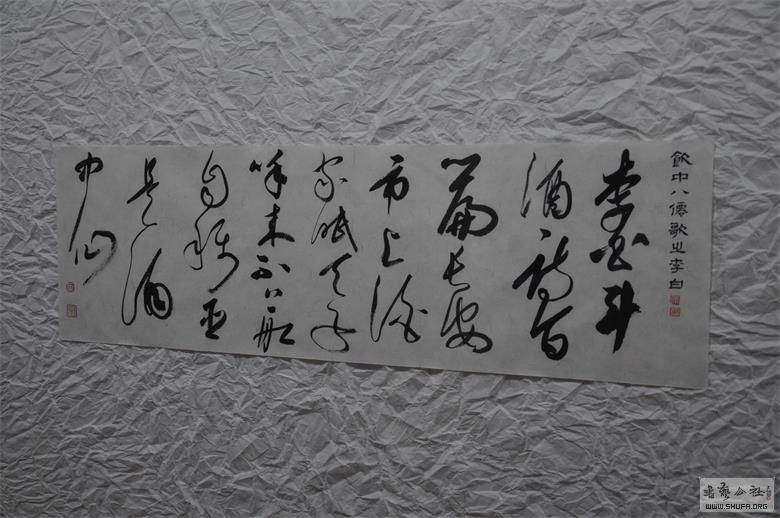 飲中八僊歌之李白
李白斗
酒詩百
篇長安
市上酒
家眠天子
呼來不上船
自稱臣
是酒
中仙
書藝公社
WWW.SHUFA.ORG